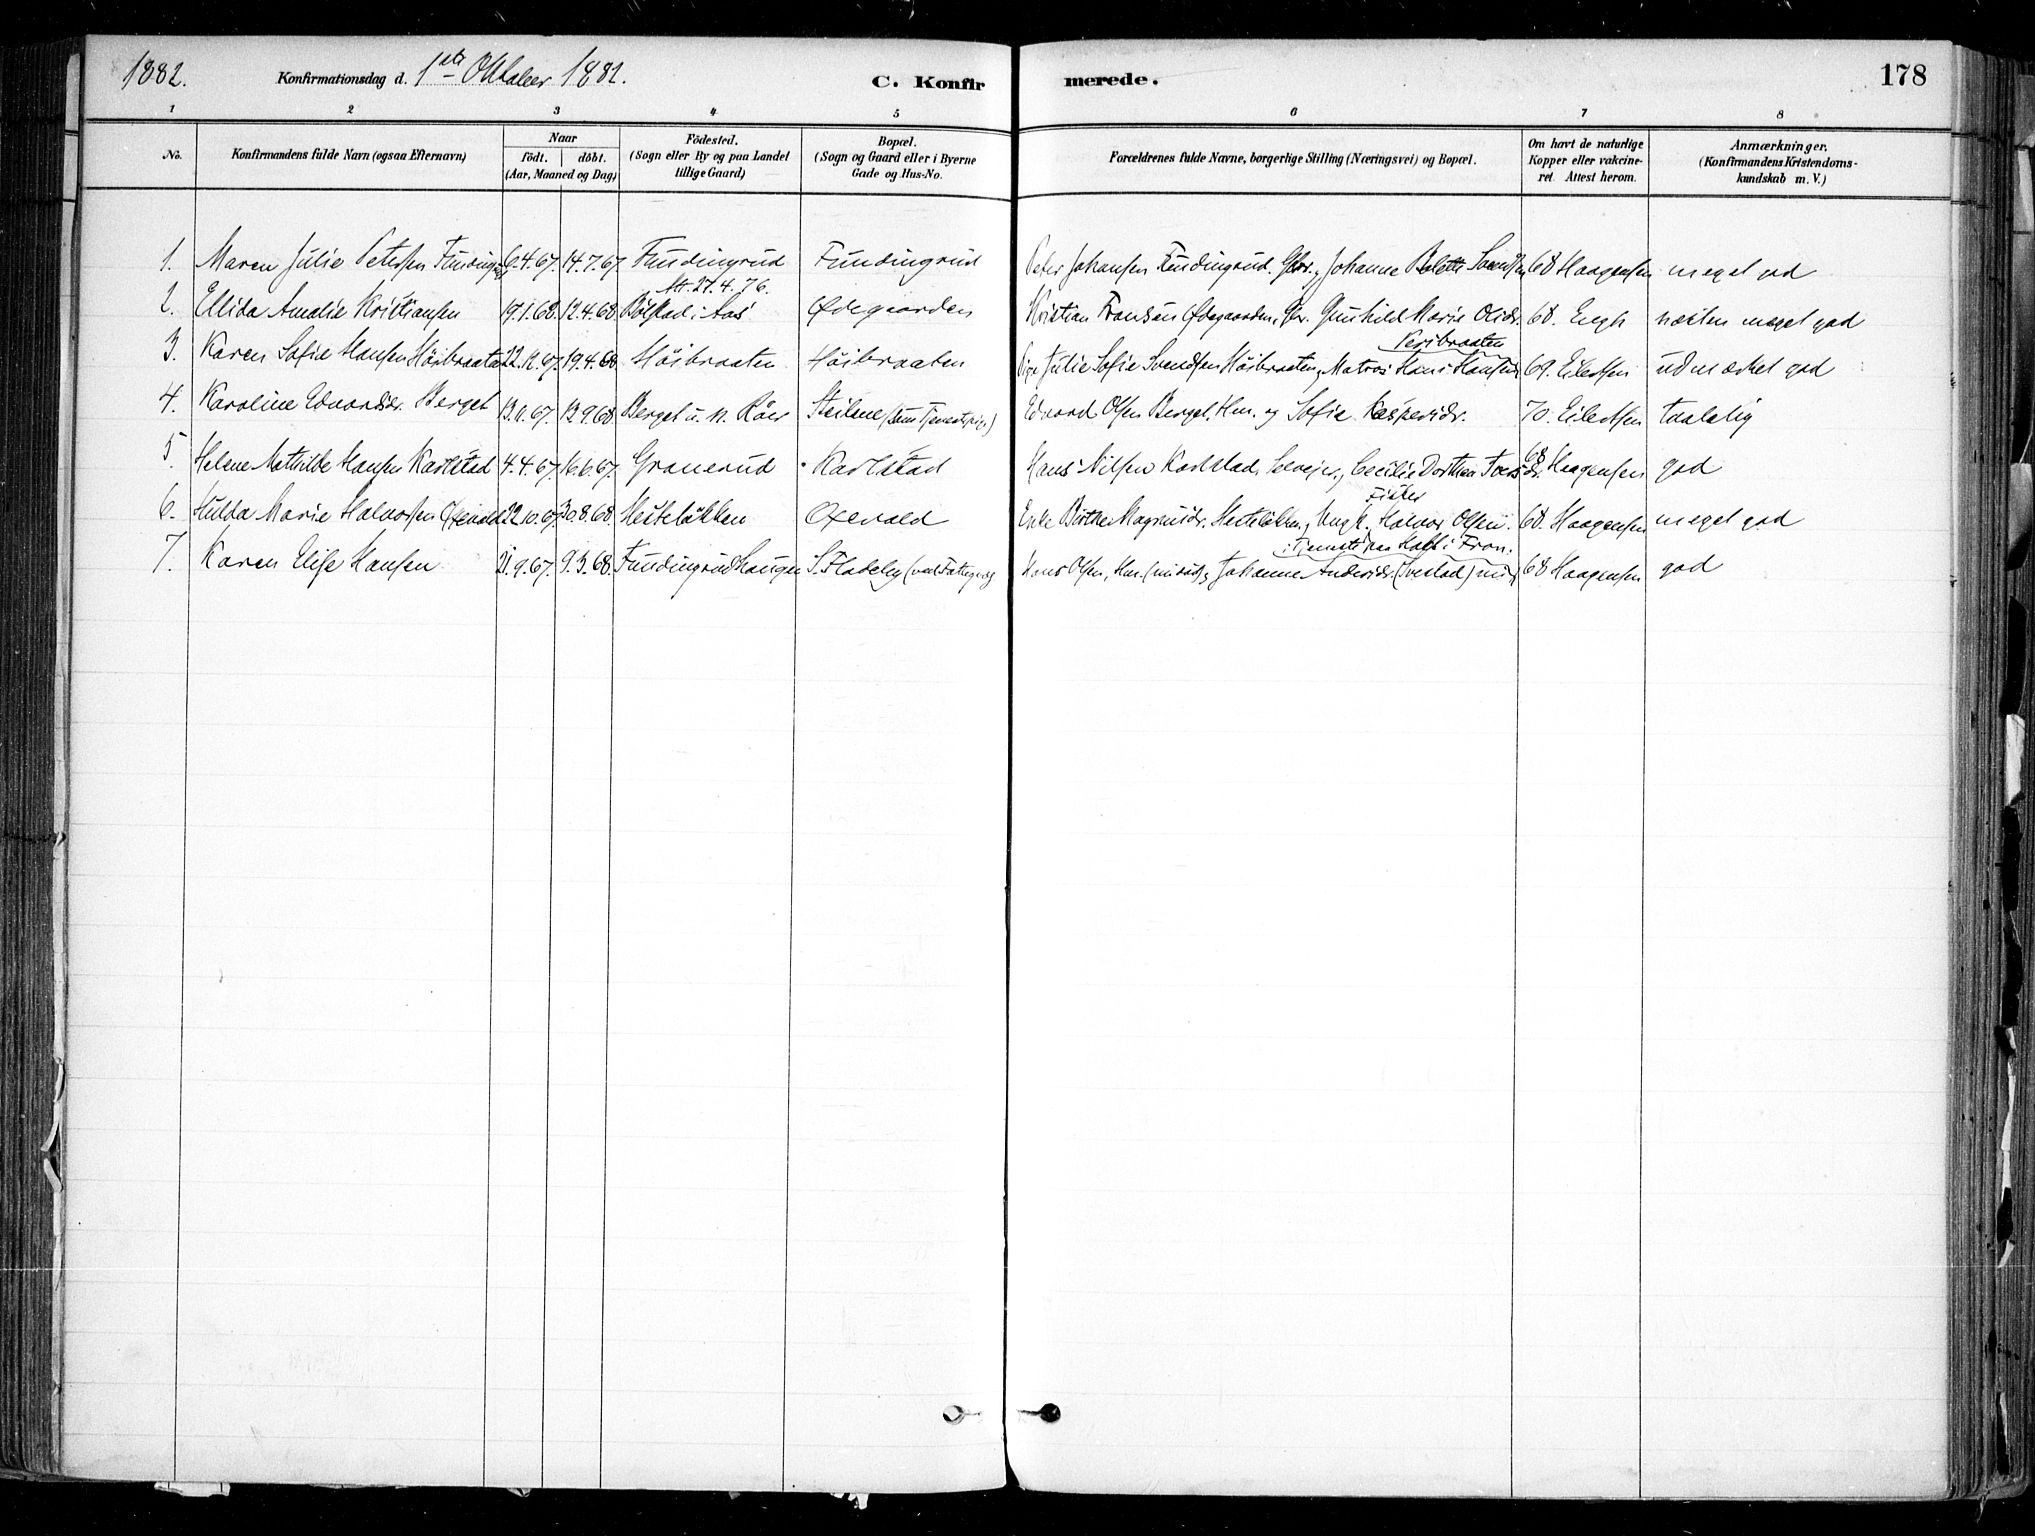 1882. Konfirmationsdag d. 1ste Oktober 1882. C. Konfirmerede. 178
1 2 3 4 5 6 7 8
No. Konfirmandens fulde Navn (ogsaa Efternavn) Naar födt. döbt. (Aar, Maaned og Dag) Födested. (Sogn eller By og paa Landet tillige Gaard) Bopæl. (Sogn og Gaard eller i Byerne Gade og Hus-No. Forældrenes fulde Navne, borgerlige Stilling (Næringsvei) og Bopæl. Om havt de naturlige Kopper eller vakcineret. Attest herom. Anmærkninger. (Konfirmandens Kristendomskundskab m. V.)
1. Maren Julie Petersen Fundingrud 9.4.67. 14.7.67 Fundingrud Fundingrud Peter Johansen Fundingrud, Gbr. og Johanne Bolette Svendsen 68 Haagensen meget god
Att. 27.4.76.
2. Ellida Amalie Kristiansen 19.1.68. 12.4.68. Bölstad i Aas Ødegaarden Kristian Fransen Ødegaarden, Gbr. Gunhild Marie Olsdr. 68. Engh næsten meget god
Peribraaten
3. Karen Sofie Hansen Höibraaten 22.12.67. 19.4.68 Höibraaten Höibraaten Pige Julie Sofie Svendsen Höibraaten, Matros Hans Hansen 69. Eilertsen udmærket god
4. Karoline Edvardsdr. Berget 13.11.67. 13.9.68 Berget u. N. Röer Steilene (som Tjenestpige) Edvard Olsen Berget, Hm. og Sofie Kaspersdr. 70. Eilertsen taalelig
5. Helene Mathilde Hansen Karlstad 4.4.67. 16.6.67. Granerud Karlstad Hans Nilsen Karlstad, Selvejer, Cecilie Dorthea Iversdr. 68 Haagensen god
Fisker
6. Hulda Marie Halvorsen Oxevald 22.10.67. 30.8.68. Hesteløkken Oxevald Enke Birthe Magnusdr. Hesteløkken, Ungk. Halvor Olsen. 68. Haagensen meget god
i Tjeneste paa Holt i Fron.
7. Karen Elise Hansen 21.9.67. 9.3.68. Fundingrudhaugen S. Fladeby (ved Fattigv. Hans Olsen, Hm. og Johanne Andersdr. (Svestad) 68 Haagensen god